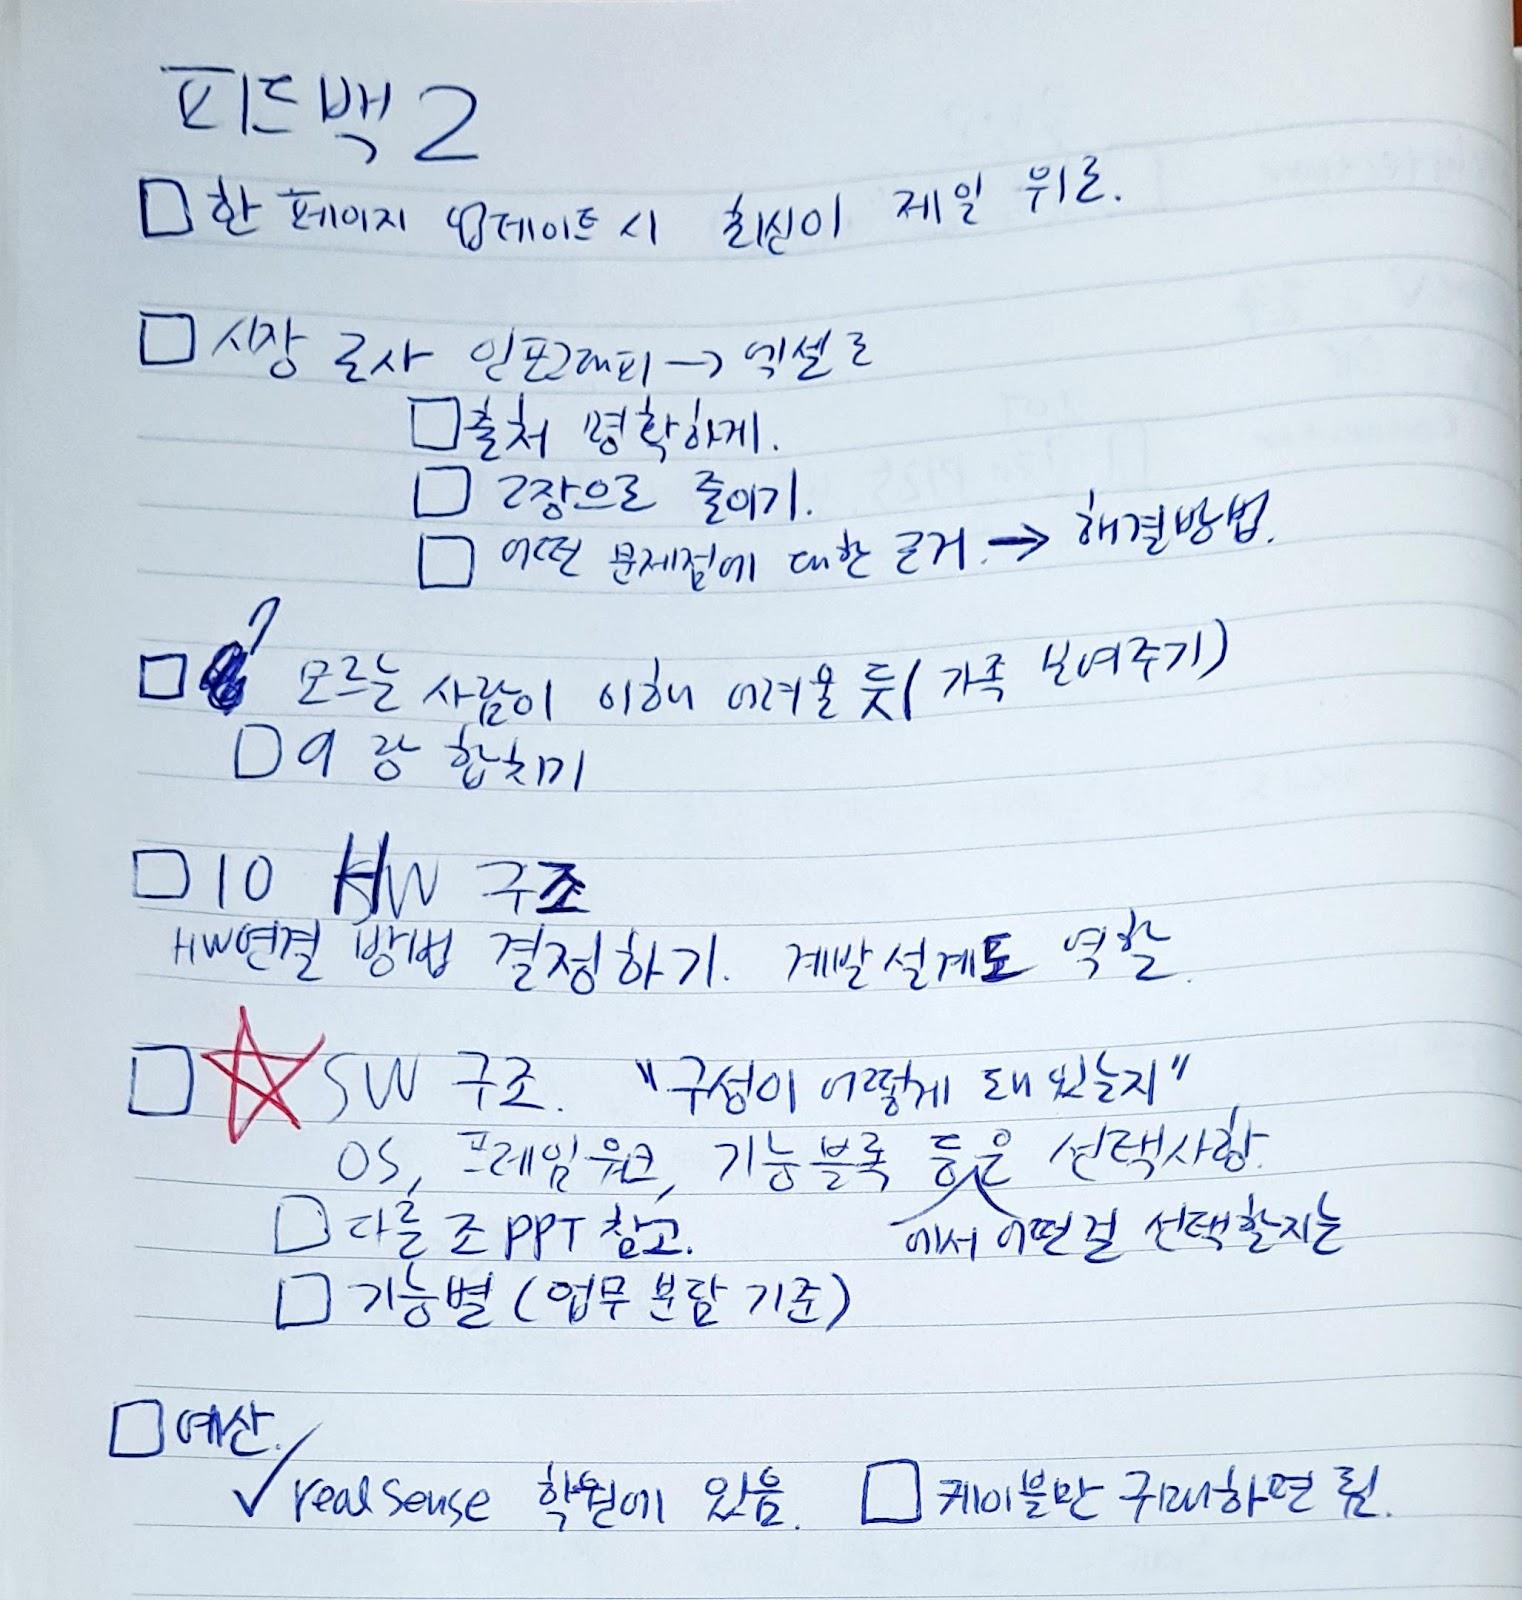 피드백 2
□ 한 페이지 업데이트 시 최신이 제일 위로.
□ 시장 조사 인포그래피 → 엑셀로
□ 출처 명확하게.
□ 2장으로 줄이기.
□ 어떤 문제점에 대한 근거. → 해결방법.
□ ? 모르는 사람이 이해 어려울 듯 (가족 보여주기)
□ 9랑 합치기
□ 10 HW 구조
HW연결 방법 결정하기. 계발설계도 역할.
□ ☆ SW 구조. "구성이 어떻게 돼 있는지"
OS, 프레임워크, 기능블록 등은 선택사항.
□ 다른 조 PPT 참고. 에서 어떤걸 선택할지는
□ 기능별 (업무 분담 기준)
□ 예산.
✓ realsense 학원에 있음. □ 케이블만 구매하면 됨.